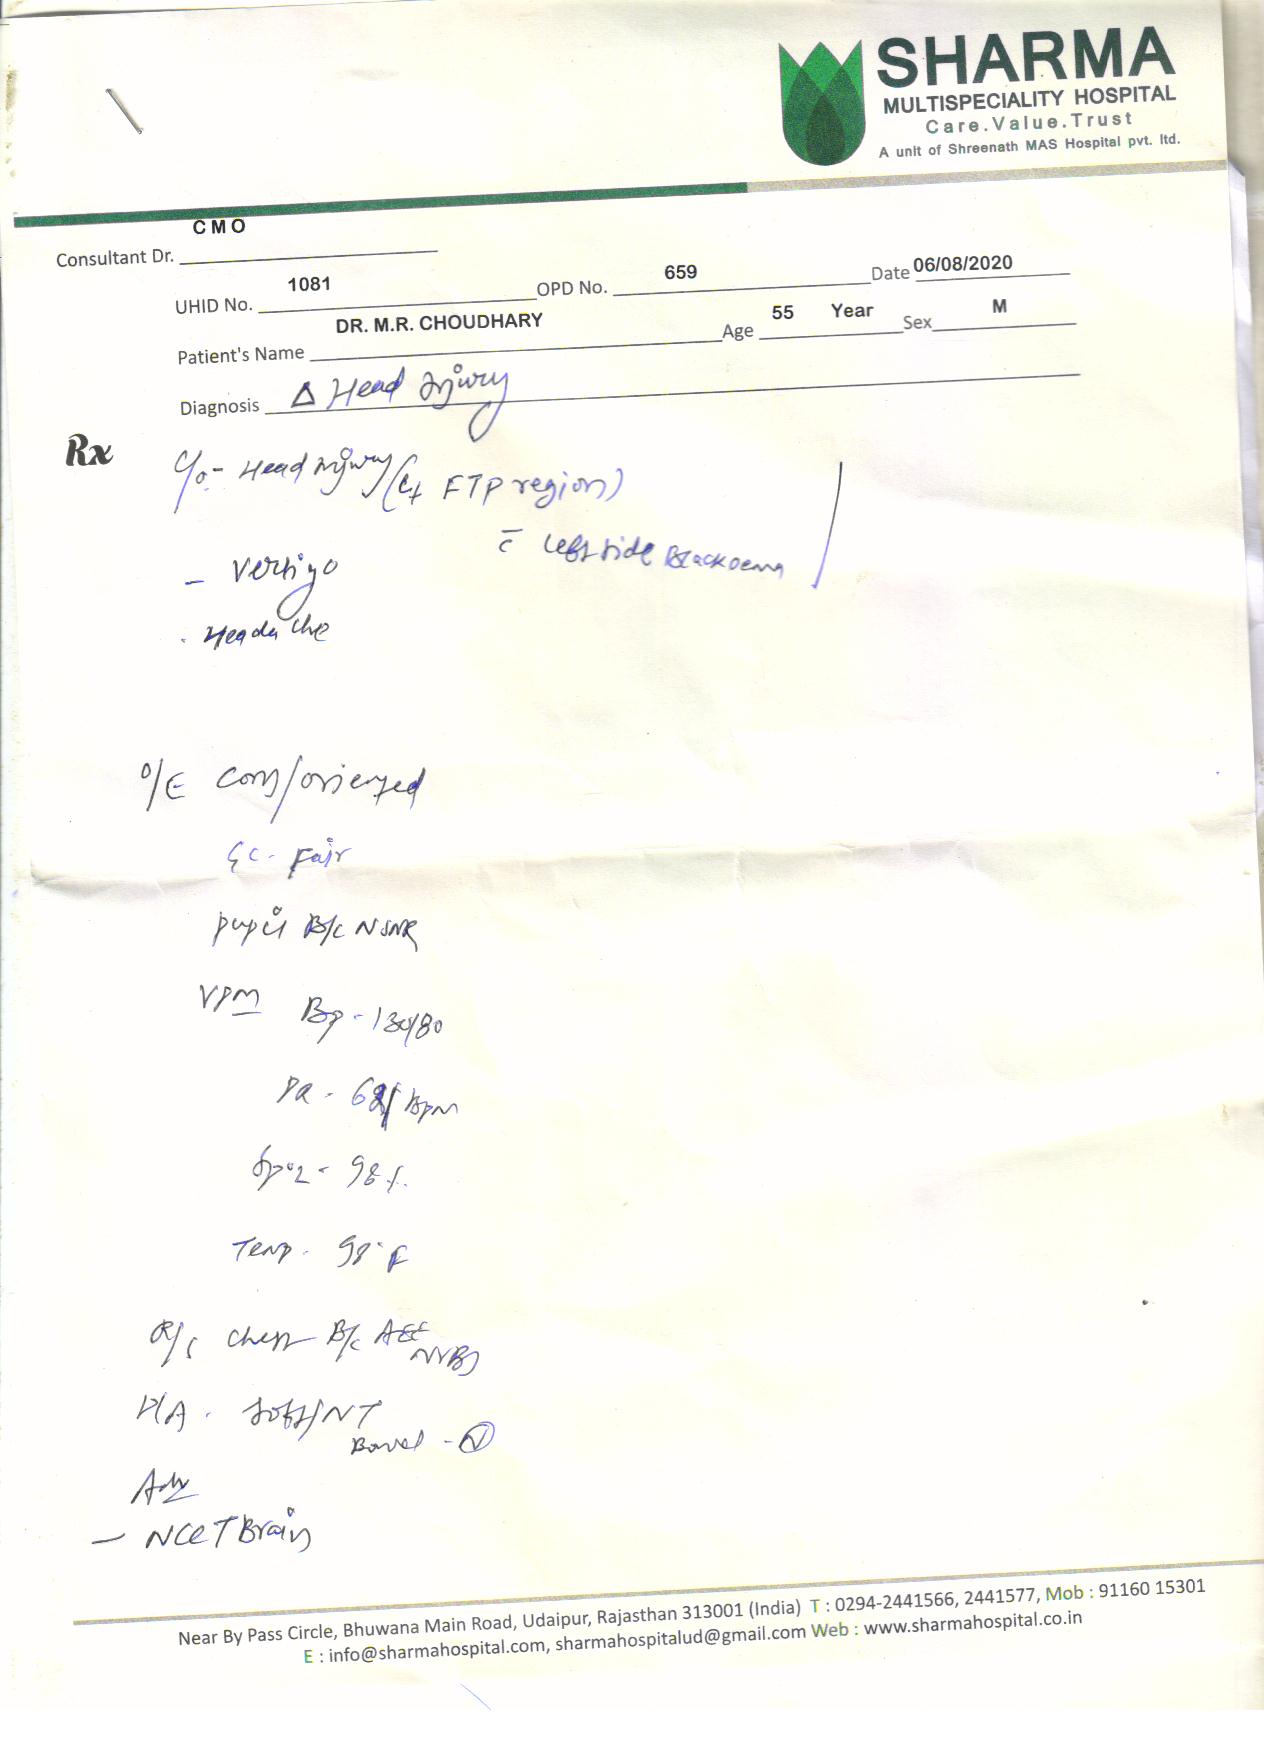 SHARMA
MULTISPECIALITY HOSPITAL
Care.Value.Trust
A unit of Shreenath MAS Hospital pvt. ltd.
Consultant Dr. CMO
UHID No. 1081 OPD No. 659 Date 06/08/2020
Patient's Name DR. M.R. CHOUDHARY Age 55 Year Sex M
Diagnosis Δ Head Injury
Rx
C/o- Head injury (Lt FTP region)
c̄ left side
- Vertigo
. Headache
O/E Cons/oriented
GC- Fair
pupil B/L NSNR
VPM Bp - 130/80
PR - 62/Bpm
SpO2 - 98%
Temp - 98°F
R/S Chest B/L AEE
NVBS
P/A - Soft/NT
Bowel - N
Adv
- NCCT Brain
Near By Pass Circle, Bhuwana Main Road, Udaipur, Rajasthan 313001 (India) T : 0294-2441566, 2441577, Mob : 91160 15301
E : info@sharmahospital.com, sharmahospitalud@gmail.com Web : www.sharmahospital.co.in